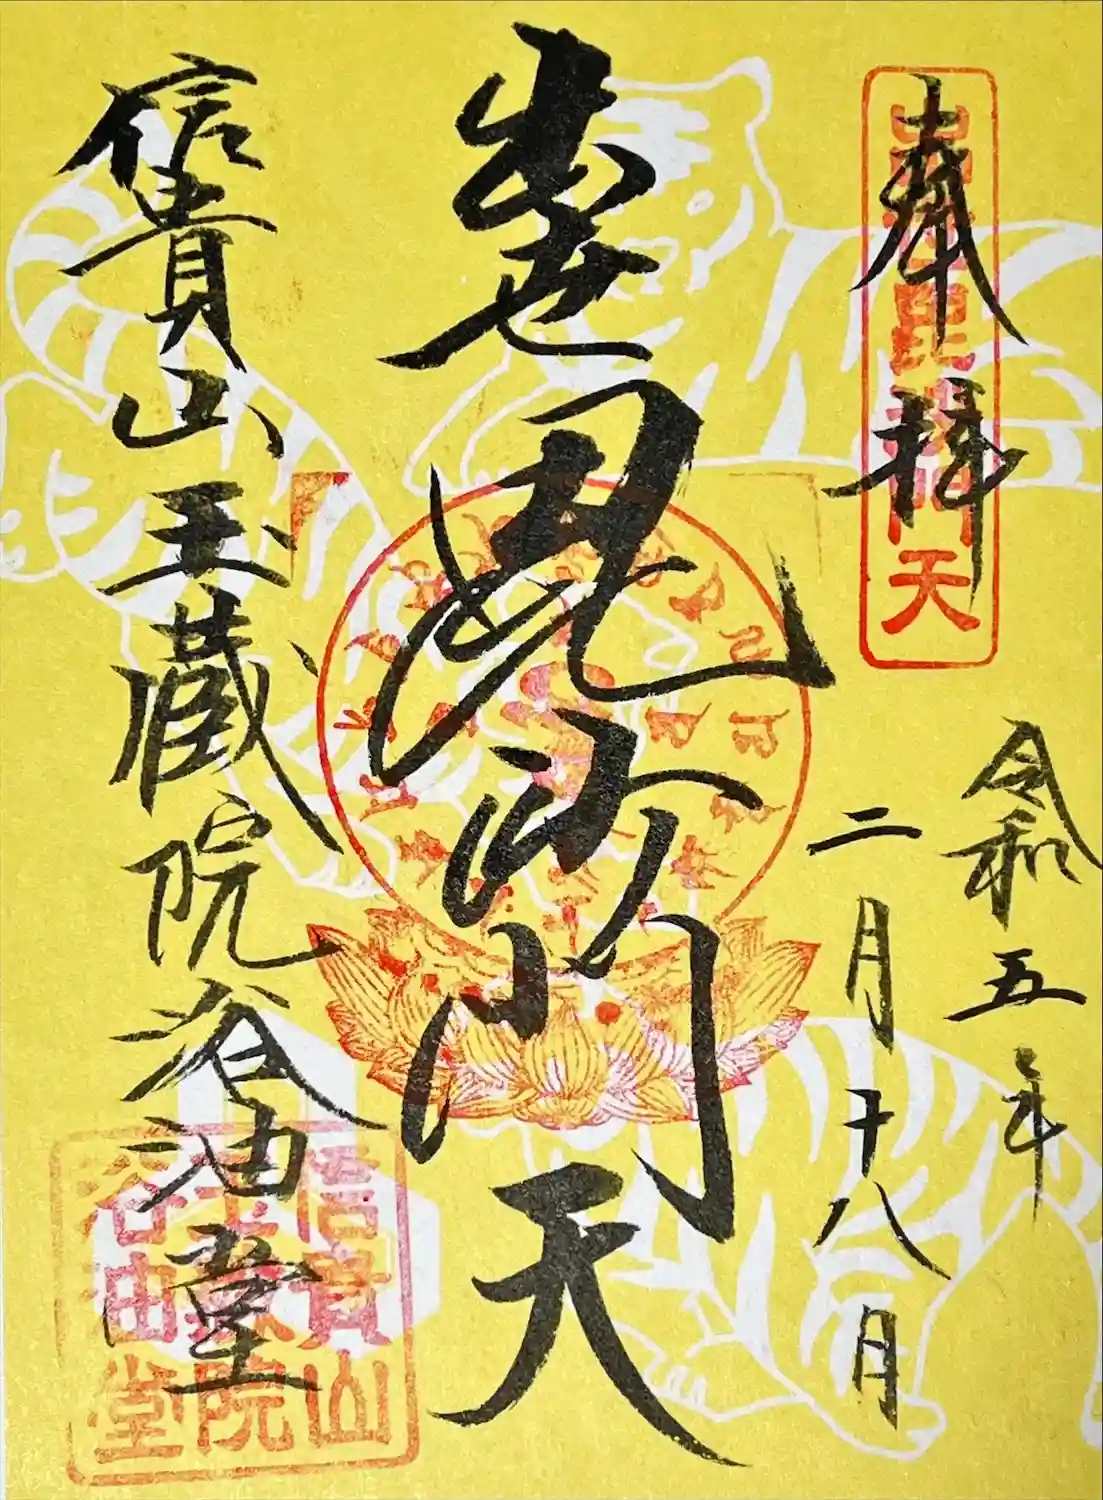 奉拝
出世毘沙門天
令和五年
二月十八日
出世毘沙門天
信貴山玉蔵院浴油堂
信貴山
玉蔵院
浴油堂